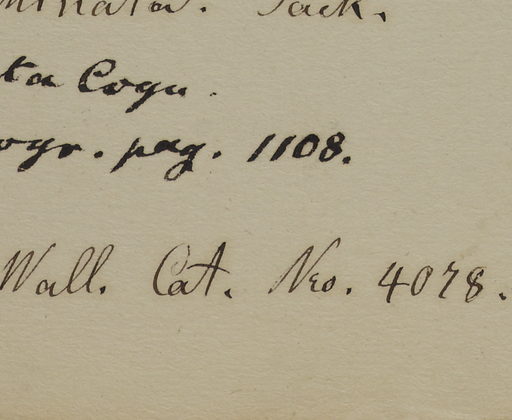 minata. Jack.
ta Cogn.
ogr. pag. 1108.
Wall. Cat. Nro. 4078.